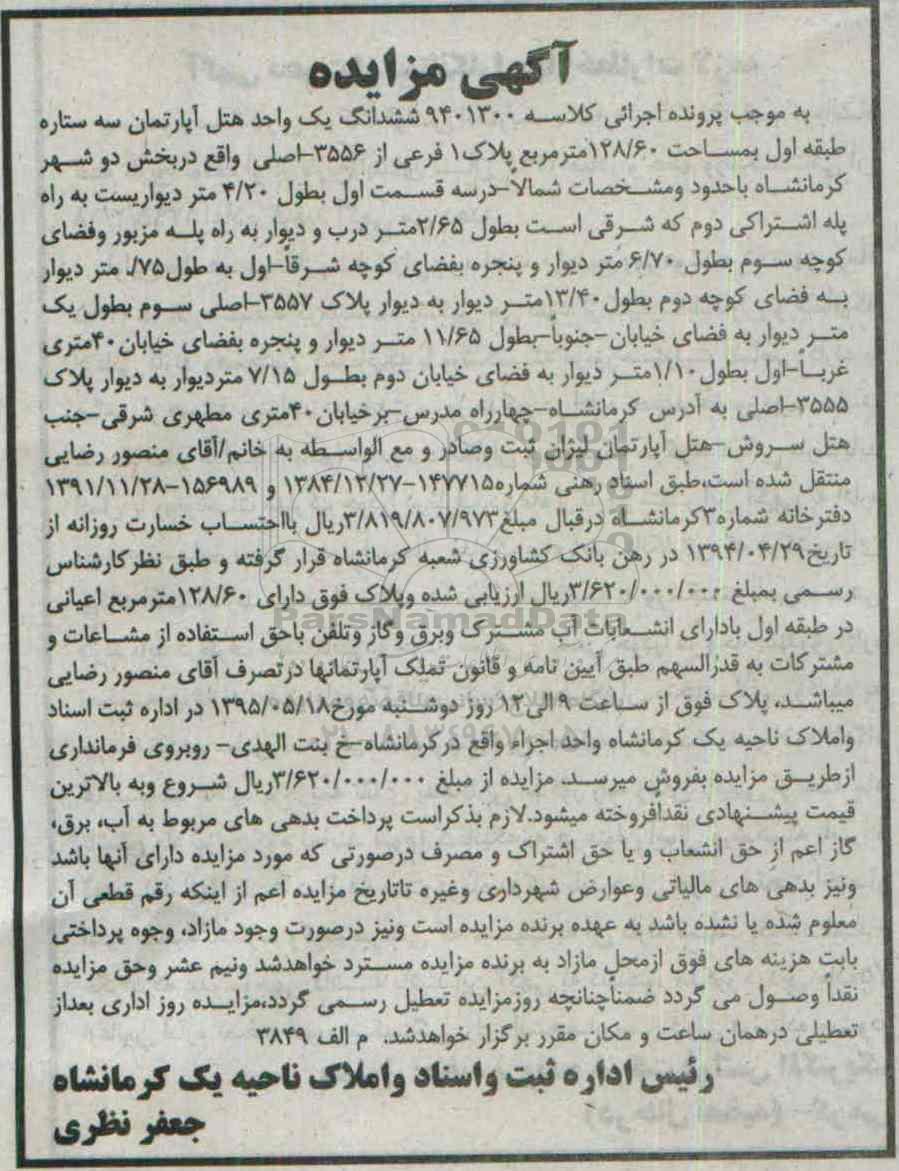 آگهی مزایده
به موجب پرونده اجرائی کلاسه ۹۴۰۱۳۰۰ ششدانگ یک واحد هتل آپارتمان سه ستاره
طبقه اول بمساحت ۱۲۸/۶۰مترمربع پلاک۱ فرعی از ۳۵۵۶-اصلی واقع دربخش دو شهر
کرمانشاه باحدود ومشخصات شمالاً-درسه قسمت اول بطول ۴/۲۰ متر دیواریست به راه
پله اشتراکی دوم که شرقی است بطول ۲/۶۵متر درب و دیوار به راه پله مزبور وفضای
کوچه سوم بطول ۶/۷۰ متر دیوار و پنجره بفضای کوچه شرقاً-اول به طول۷۵/. متر دیوار
به فضای کوچه دوم بطول ۱۳/۴۰متر دیوار به دیوار پلاک ۳۵۵۷-اصلی سوم بطول یک
متر دیوار به فضای خیابان-جنوباً-بطول ۱۱/۶۵ متر دیوار و پنجره بفضای خیابان۴۰متری
غرباً-اول بطول۱/۱۰متر دیوار به فضای خیابان دوم بطول ۷/۱۵ متردیوار به دیوار پلاک
۳۵۵۵-اصلی به آدرس کرمانشاه-چهارراه مدرس-برخیابان۴۰متری مطهری شرقی-جنب
هتل سروش-هتل آپارتمان لیژان ثبت وصادر و مع الواسطه به خانم/آقای منصور رضایی
منتقل شده است،طبق اسناد رهنی شماره۱۴۷۷۱۵-۱۳۸۴/۱۲/۲۷ و ۱۵۶۹۸۹-۱۳۹۱/۱۱/۲۸
دفترخانه شماره۳کرمانشاه درقبال مبلغ۳/۸۱۹/۸۰۷/۹۷۳ریال بااحتساب خسارت روزانه از
تاریخ۱۳۹۴/۰۴/۲۹ در رهن بانک کشاورزی شعبه کرمانشاه قرار گرفته و طبق نظرکارشناس
رسمی بمبلغ ۳/۶۲۰/۰۰۰/۰۰۰ریال ارزیابی شده وپلاک فوق دارای ۱۲۸/۶۰مترمربع اعیانی
در طبقه اول بادارای انشعابات آب مشترک وبرق وگاز وتلفن باحق استفاده از مشاعات و
مشترکات به قدرالسهم طبق آیین نامه و قانون تملک آپارتمانها درتصرف آقای منصور رضایی
میباشد، پلاک فوق از ساعت ۹الی۱۲ روز دوشنبه مورخ۱۳۹۵/۰۵/۱۸ در اداره ثبت اسناد
واملاک ناحیه یک کرمانشاه واحد اجراء واقع درکرمانشاه-خ بنت الهدی- روبروی فرمانداری
ازطریق مزایده بفروش میرسد. مزایده از مبلغ ۳/۶۲۰/۰۰۰/۰۰۰ریال شروع وبه بالاترین
قیمت پیشنهادی نقدافروخته میشود.لازم بذکراست پرداخت بدهی های مربوط به آب، برق،
گاز اعم از حق انشعاب و یا حق اشتراک و مصرف درصورتی که مورد مزایده دارای آنها باشد
ونیز بدهی های مالیاتی وعوارض شهرداری وغیره تاتاریخ مزایده اعم از اینکه رقم قطعی آن
معلوم شده یا نشده باشد به عهده برنده مزایده است ونیز درصورت وجود مازاد، وجوه پرداختی
بابت هزینه های فوق ازمحل مازاد به برنده مزایده مسترد خواهدشد ونیم عشر وحق مزایده
نقداً وصول می گردد ضمناًچنانچه روزمزایده تعطیل رسمی گردد،مزایده روز اداری بعداز
تعطیلی درهمان ساعت و مکان مقرر برگزار خواهدشد. م الف ۳۸۴۹
رئیس اداره ثبت واسناد واملاک ناحیه یک کرمانشاه
جعفر نظری
ParsNamadData